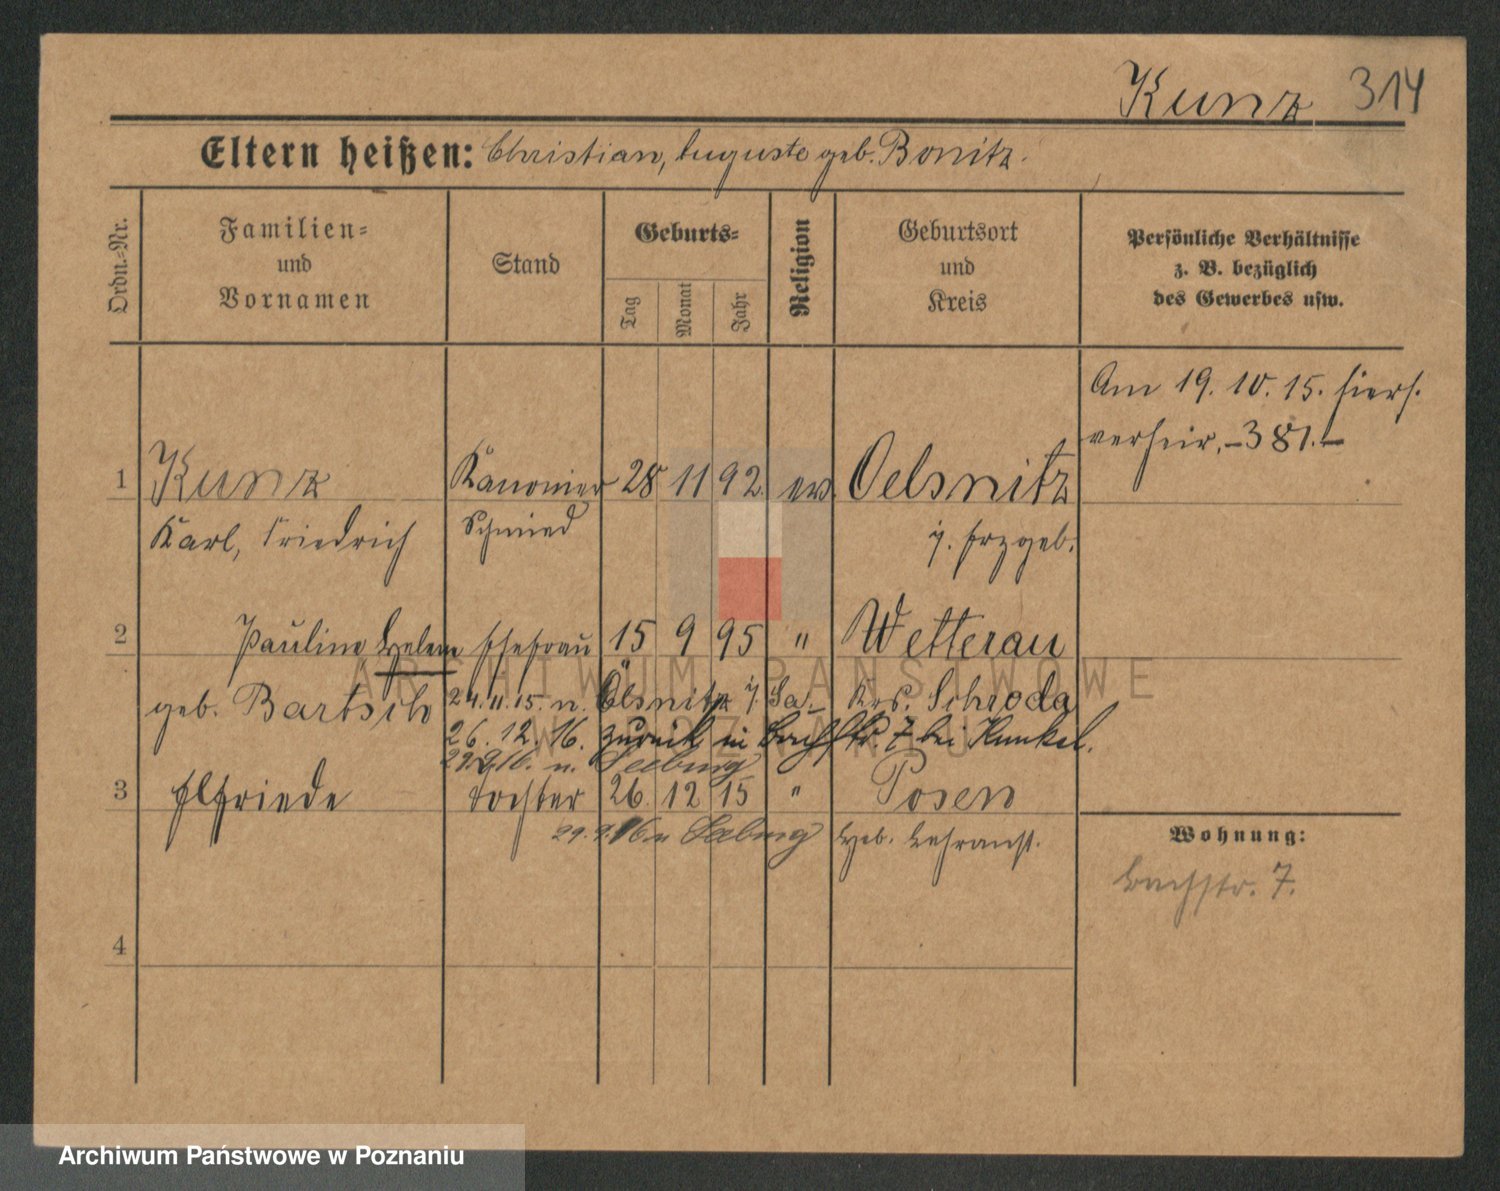 Kunz 314
Eltern heißen: Christian, Auguste geb. Bonitz.
Ordn.=Nr.
Familien=
und
Vornamen
Stand
Geburts=
Tag
Monat
Jahr
Religion
Geburtsort
und
Kreis
Persönliche Verhältnisse
z. B. bezüglich
des Gewerbes usw.
Am 19. 10. 15. hiers.
verheir. -381.-
1 Kunz Kanonier 28 11 92 ev. Oelsnitz
Karl, Friedrich Schmied i. Erzgeb.
2 Pauline Helene Ehefrau 15 9 95 " Wetterau
geb. Bartsch 24. 11. 15. n. Ölsnitz i. Sa. Krs. Schroda
26. 12. 16. zurück in Bachstr. 7 bei Kunkel.
29. 9. 16. n. Seeburg
3 Elfriede Tochter 26. 12 15 " Posen
29. 9. 16 n Seeburg Heb. Lehranst.
Wohnung:
Bachstr. 7.
4
ARCHIWUM PAŃSTWOWE
W POZNANIU
Archiwum Państwowe w Poznaniu